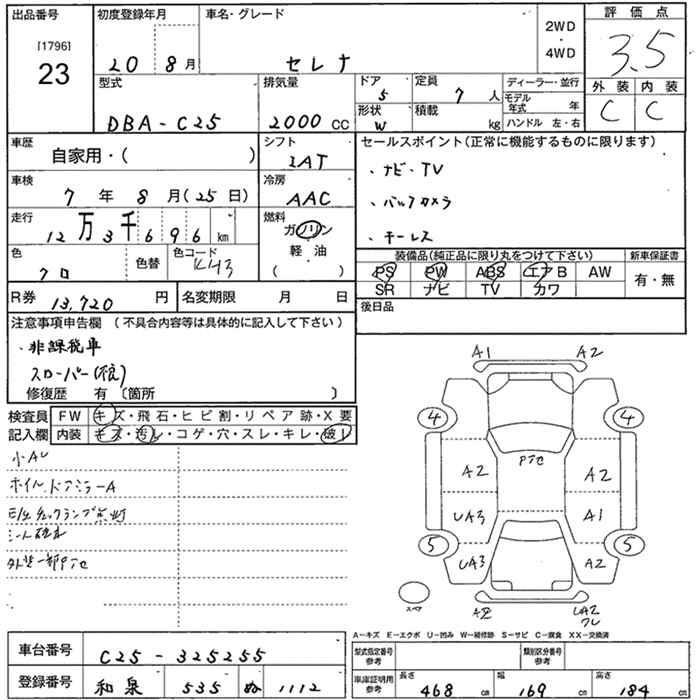 出品番号
[1796]
23
初度登録年月
20 8月
車名・グレード
セレナ
2WD
・
4WD
評価点
3.5
外装 内装
C C
型式
DBA-C25
排気量
2000 CC
ドア
5
形状
W
定員
7 人
積載
kg
ディーラー・並行
モデル年式 年
ハンドル 左・右
車歴
自家用・( )
シフト
IAT
車検
7年 8月(25日)
冷房
AAC
走行
12万3千696km
燃料
ガソリン
軽・油
( )
色
クロ
色替
色コード
KH3
R券 13,720 円
名変期限 月 日
セールスポイント(正常に機能するものに限ります)
・ナビ・TV
・バックカメラ
・キーレス
装備品(純正品に限り丸をつけて下さい)
PS PW ABS エアB AW
SR ナビ TV カワ
新車保証書
有・無
後日品
注意事項申告欄 (不具合内容等は具体的に記入して下さい)
・非課税車
スローパー(後)
修復歴 有〔箇所 〕
検査員記入欄
FW キズ・飛石・ヒビ割・リペア跡・X要
内装 キズ・汚レ・コゲ・穴・スレ・キレ・破レ
小AU
ホイル.ドアミラーA
シート破れ
外装一部
A1 A2
4 4
A2 A2
UA3 A1
5 5
UA3 A2
スペア
A2
UA2
ワレ
A-キズ E-エクボ U-凹み W-補修跡 S-サビ C-腐食 XX-交換済
車台番号 C25-325255
登録番号 和泉 535 ぬ 1112
型式指定番号
参考
類別区分番号
参考
車庫証明用
参考
長さ 468 cm
幅 169 cm
高さ 184 cm